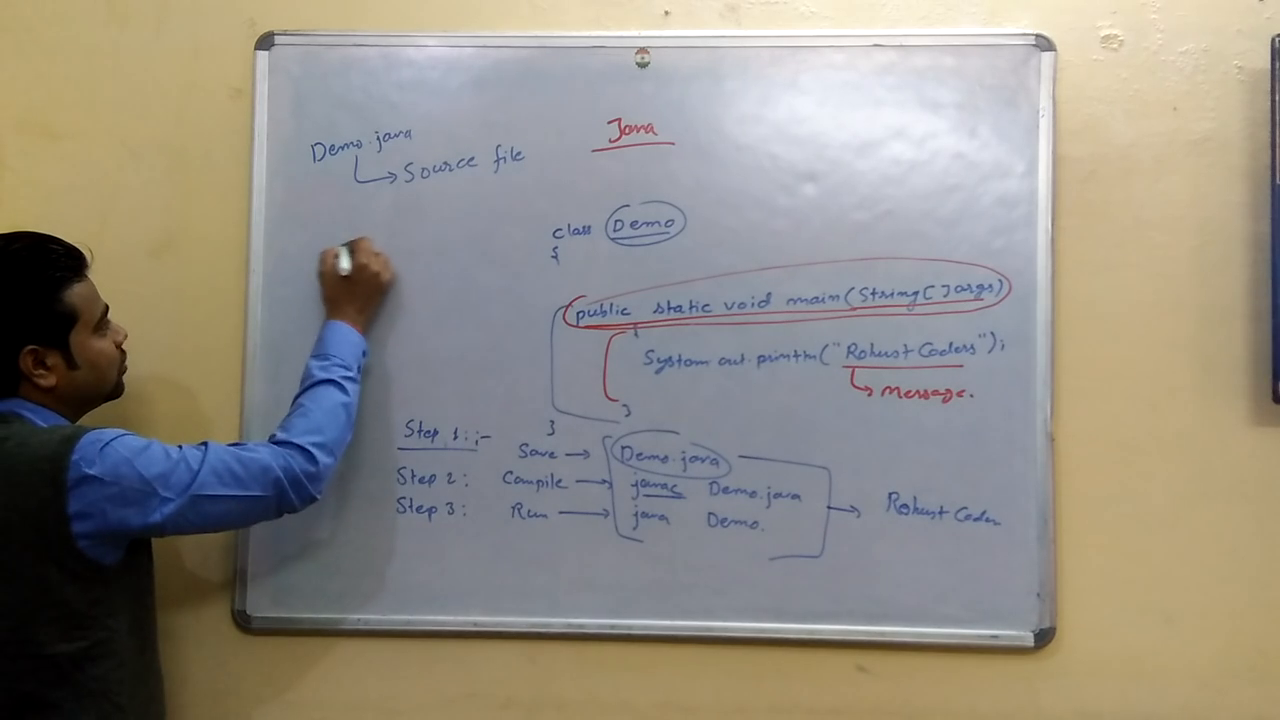 Java
Demo.java
Source file
class Demo
{
public static void main(String[] args)
{
System.out.println("Robust Coders");
message.
}
}
Step 1:- Save → Demo.java
Step 2: Compile → javac Demo.java
Step 3: Run → java Demo.
→ Robust Coder